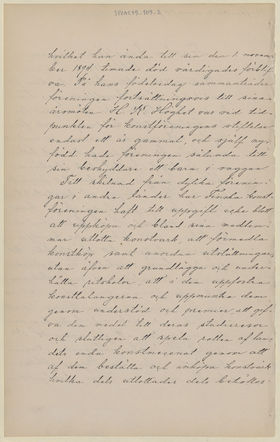 hvilket han ända till sin den 1 novem-
ber 1894 timade död värdigades förblif-
va. På hans födelsedag sammanträder
föreningen fortsättningsvis till sina
årsmöten. H. K. Höghet var vid tid-
punkten för konstföreningens stiftelse
endast ett år gammal, och själf ny-
född hade föreningen sålunda till
sin beskyddare ett barn i vaggan.
Till skilnad från dylika förenin-
gar i andra länder har Finska konst-
föreningen haft till uppgift icke blott
att uppköpa och bland sina medlem-
mar utlotta konstverk, att förmedla
konstköp samt anordna utställningar,
utan äfven att grundlägga och under-
hålla ritskolor, att i dem uppfostra
konstidkare och uppmuntra dem
genom understöd och premier, att gif-
va dem medel till deras studieresor
och slutligen att spela rollen af lan-
dets enda konstmecenat genom att
af dem beställa och inköpa konstverk
hvilka dels utlottades dels behöllos